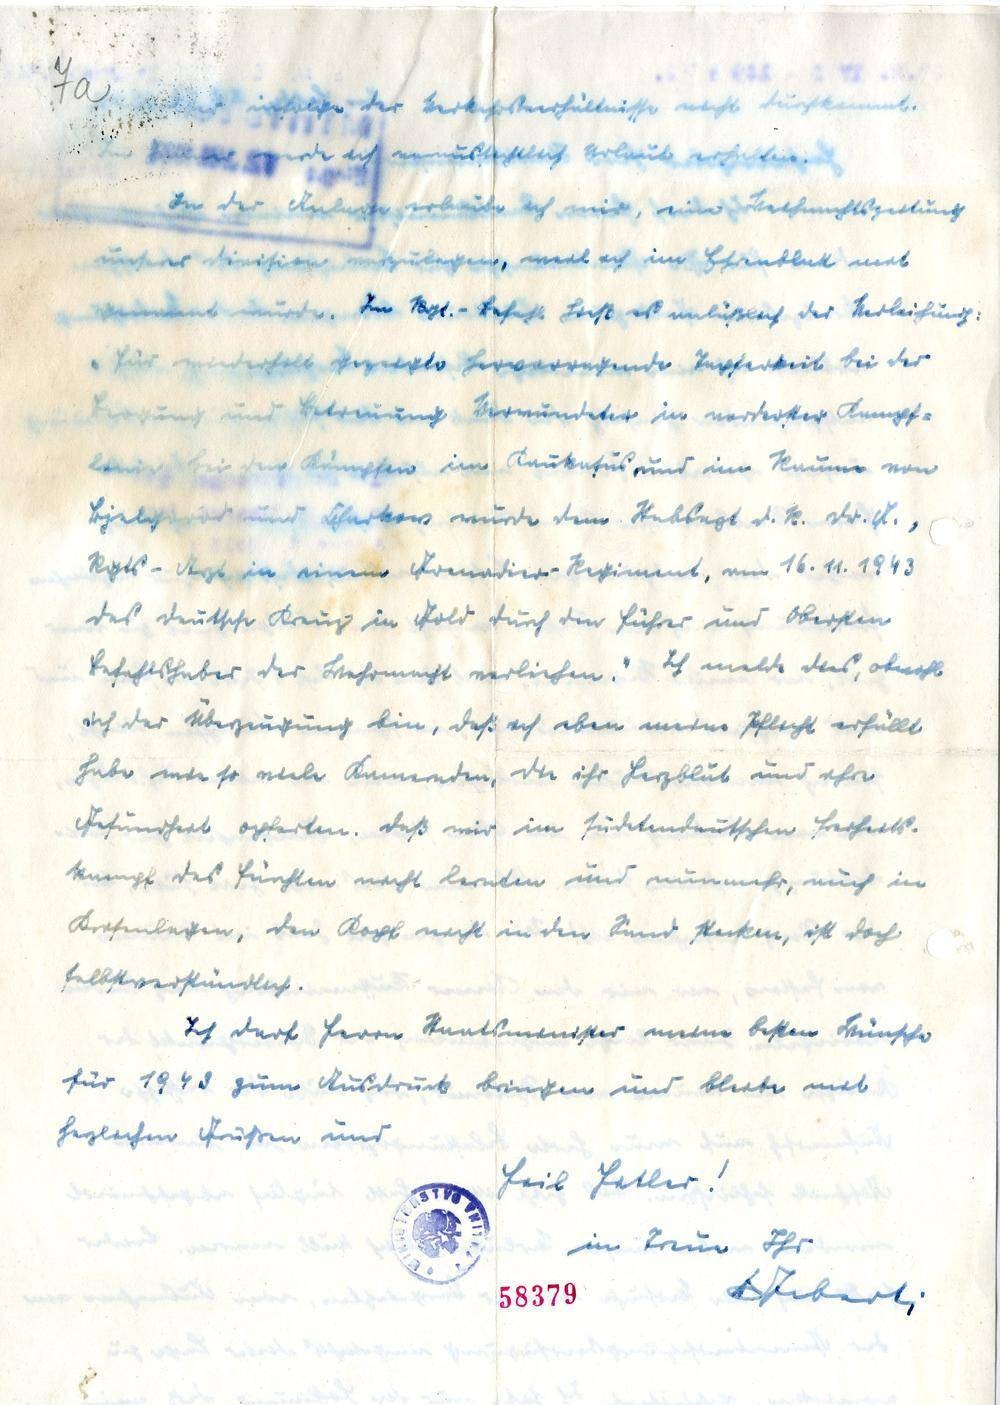 7a
infolge der Verkehrsverhältnisse nicht durchkommt.
werde ich voraussichtlich Urlaub erhalten.
In der Anlage erlaube ich mir, eine Weihnachtszeitung
unserer Division vorzulegen, weil ich im Ehrenblatt mit
genannt wurde. Im Rgt.-Befehl hieß es anläßlich der Verleihung:
"Für wiederholt gezeigte hervorragende Tapferkeit bei der
Bergung und Betreuung Verwundeter in vorderster Kampf=
linie bei den Kämpfen im Kaukasus und im Raume von
Bjelgorod und Charkow wurde dem Stabsarzt d. R. Dr. G.,
Rgts-Arzt in einem Grenadier-Regiment, am 16.11.1943
das deutsche Kreuz in Gold durch den Führer und Obersten
Befehlshaber der Wehrmacht verliehen." Ich melde dies, obwohl
ich der Überzeugung bin, daß ich eben meine Pflicht erfüllt
habe wie so viele Kameraden, die ihr Herzblut und ihre
Gesundheit opferten. Daß wir im sudetendeutschen Freiheits-
kampf das Fürchten nicht lernten und nunmehr, auch in
Krisenlagen, den Kopf nicht in den Sand stecken, ist doch
selbstverständlich.
Ich darf Herrn Staatsminister meine besten Wünsche
für 194 zum Ausdruck bringen und bleibe mit
herzlichen Grüßen und
Heil Hitler!
in Treue Ihr
MINISTERSTVO VNITRA
58379